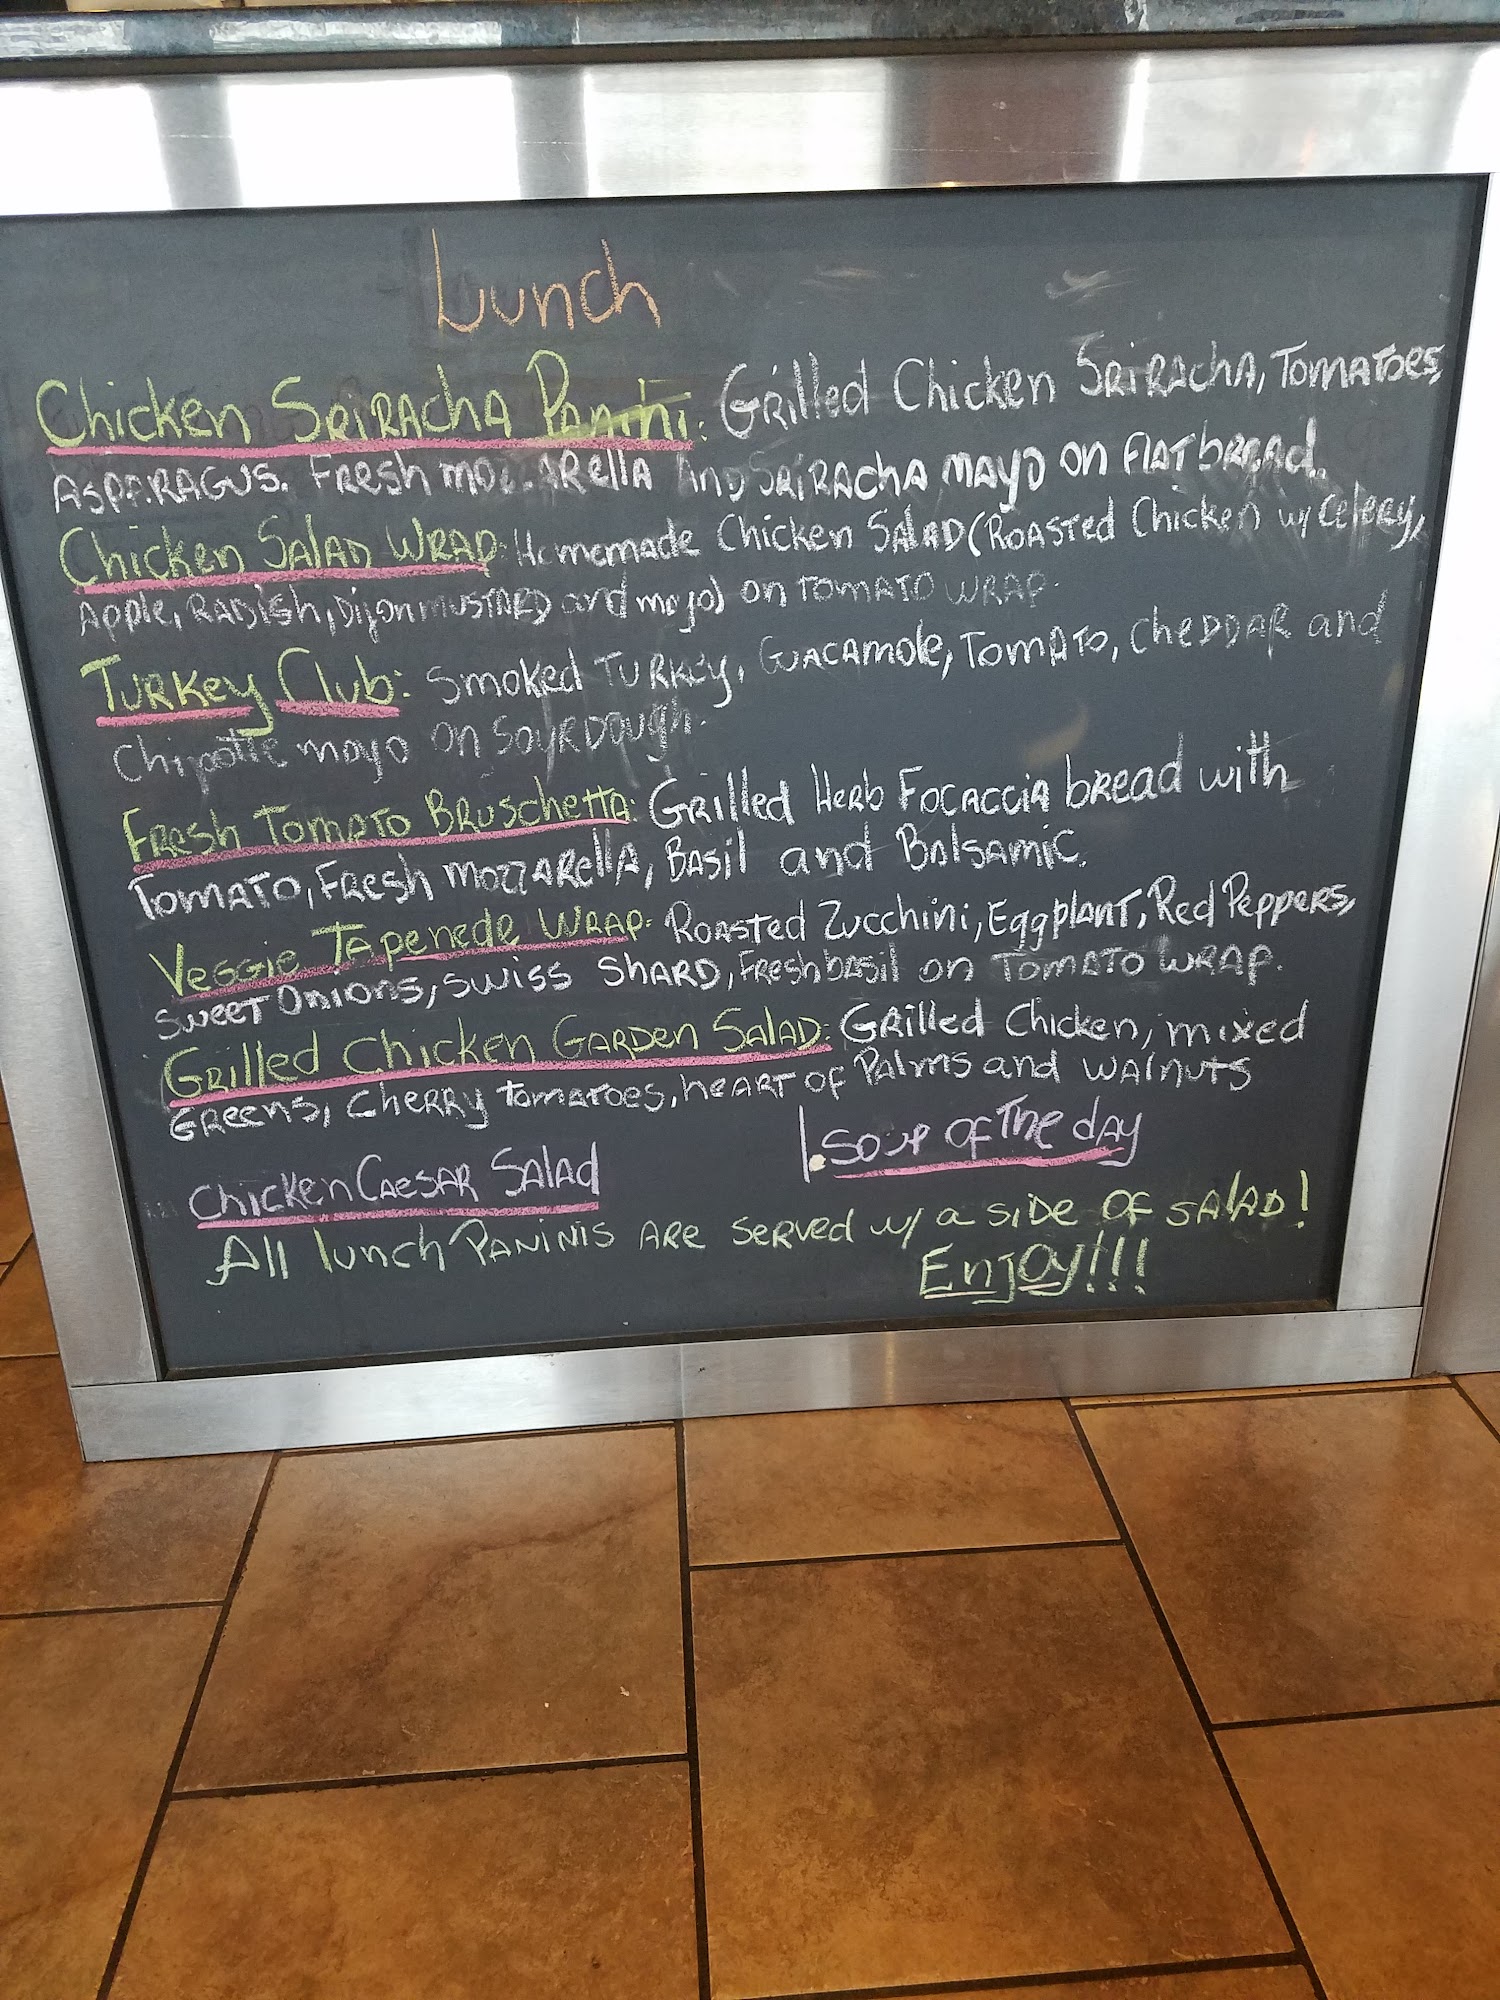 Lunch
Chicken Sriracha Panini: Grilled Chicken Sriracha, Tomatoes,
Asparagus. Fresh mozzarella And Sriracha mayo on Flatbread.
Chicken Salad Wrap: Homemade Chicken Salad (Roasted Chicken w/ Celery,
Apple, Radish, Dijon mustard and mayo) on Tomato wrap.
Turkey Club: Smoked Turkey, Guacamole, Tomato, Cheddar and
Chipotle mayo on Sourdough.
Fresh Tomato Bruschetta: Grilled Herb Focaccia bread with
Tomato, Fresh mozzarella, Basil and Balsamic.
Veggie Tapenede Wrap: Roasted Zucchini, Eggplant, Red Peppers,
Sweet Onions, Swiss Shard, Fresh basil on Tomato Wrap.
Grilled Chicken Garden Salad: Grilled Chicken, mixed
Greens, Cherry tomatoes, heart of Palms and walnuts
Chicken Caesar Salad Soup of The day
All lunch Paninis are served w/ a side of salad!
Enjoy!!!